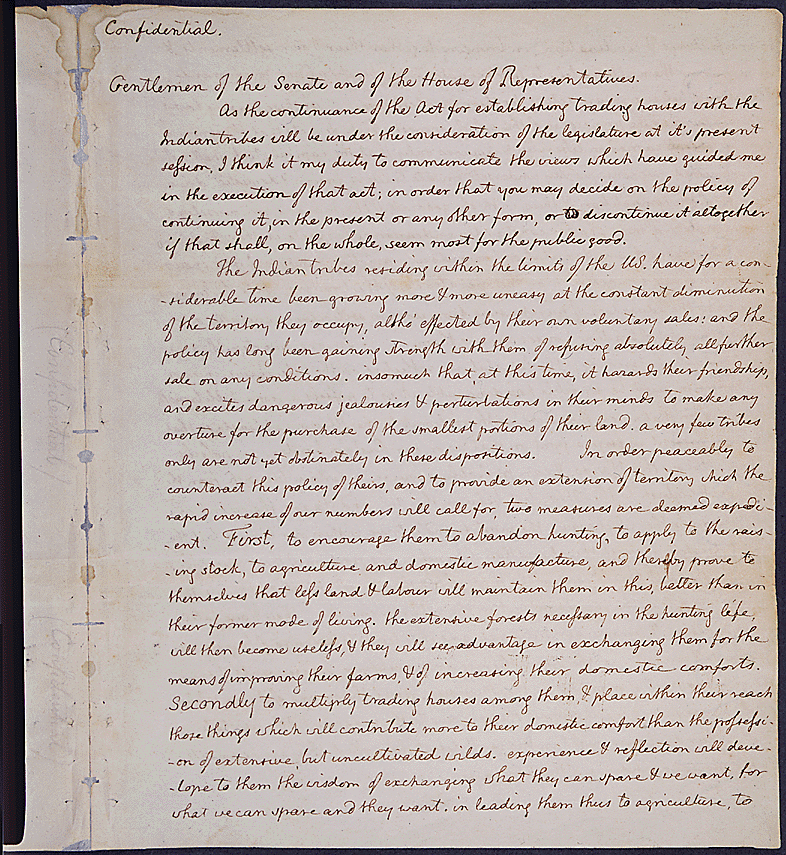 Confidential.
Gentlemen of the Senate and of the House of Representatives.
As the continuance of the Act for establishing trading houses with the
Indian tribes will be under the consideration of the legislature at it's present
session, I think it my duty to communicate the views which have guided me
in the execution of that act; in order that you may decide on the policy of
continuing it, in the present or any other form, or to discontinue it altogether
if that shall, on the whole, seem most for the public good.
The Indian tribes residing within the limits of the US. have for a con-
-siderable time been growing more & more uneasy at the constant diminution
of the territory they occupy, altho' effected by their own voluntary sales: and the
policy has long been gaining strength with them of refusing absolutely all further
sale on any conditions. insomuch that, at this time, it hazards their friendship,
and excites dangerous jealousies & perturbations in their minds to make any
overture for the purchase of the smallest portions of their land. a very few tribes
only are not yet obstinately in these dispositions. In order peaceably to
counteract this policy of theirs, and to provide an extension of territory which the
rapid increase of our numbers will call for, two measures are deemed expedi-
-ent. First, to encourage them to abandon hunting, to apply to the rais-
-ing stock, to agriculture and domestic manufacture, and thereby prove to
themselves that less land & labour will maintain them in this, better than in
their former mode of living. the extensive forests necessary in the hunting life,
will then become useless, & they will see advantage in exchanging them for the
means of improving their farms, & of increasing their domestic comforts.
Secondly to multiply trading houses among them, & place within their reach
those things which will contribute more to their domestic comfort than the possessi-
-on of extensive, but uncultivated wilds. experience & reflection will deve-
-lope to them the wisdom of exchanging what they can spare & we want, for
what we can spare and they want. in leading them thus to agriculture, to
(Confidential)
(Confidential)